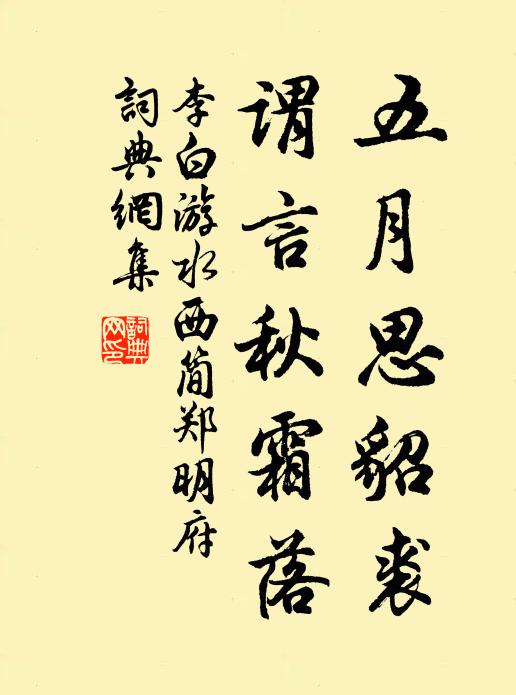 五月思貂裘
谓言秋霜落
李白游水西简郑明府
詞典網集
詞典网印